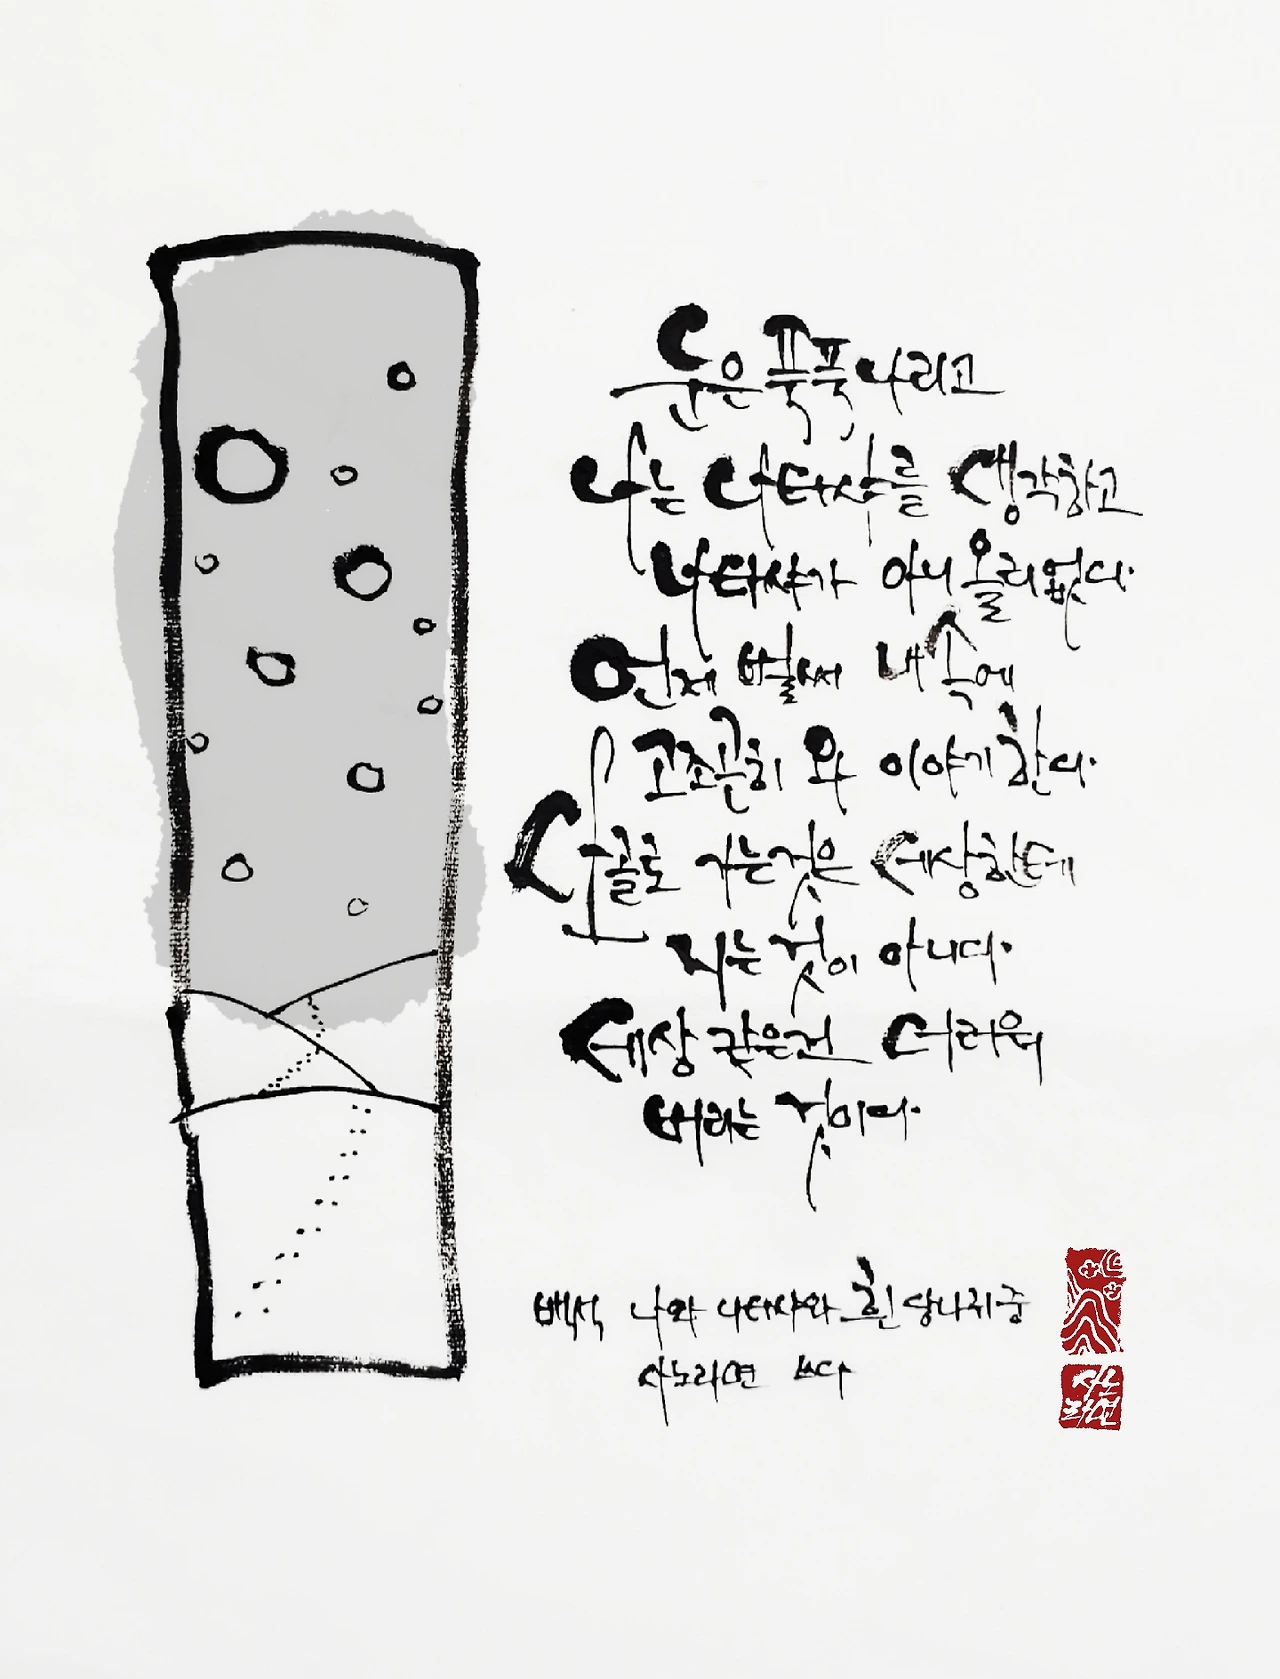 눈은 푹푹 나리고
나는 나타샤를 생각하고
나타샤가 아니 올리 없다.
언제 벌써 내 속에
고조곤히 와 이야기한다.
산골로 가는 것은 세상한테
지는 것이 아니다.
세상 같은 건 더러워
버리는 것이다.
백석 나와 나타샤와 흰 당나귀 중
사노라면 쓰다
사노
라면